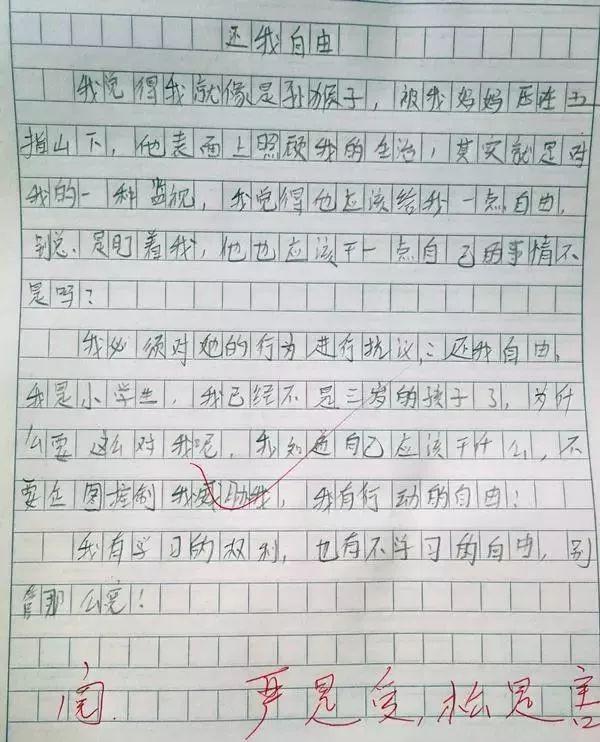 还我自由
我觉得我就像是孙猴子，被我妈妈压在五
指山下，他表面上照顾我的生活，其实就是对
我的一种监视，我觉得他应该给我一点自由，
别总是盯着我，他也应该干一点自己的事情不
是吗？
我必须对她的行为进行抗议，还我自由，
我是小学生，我已经不是三岁的孩子了，为什
么要这么对我呢，我知道自己应该干什么，不
要企图控制我威胁我，我有行动的自由！
我有学习的权利，也有不学习的自由，别
管那么宽！
阅 严是爱，松是害